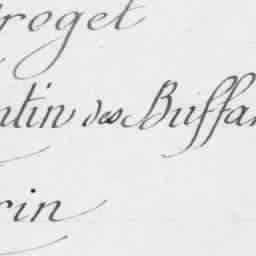 roget
ntin des Buffa
rin